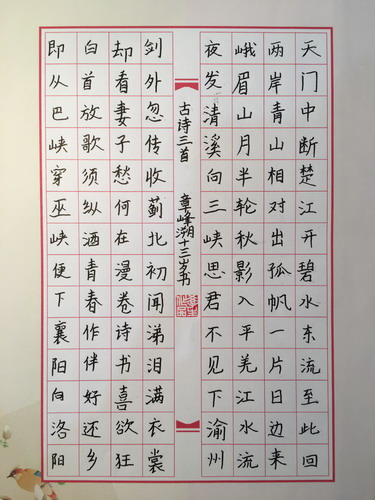 天门中断楚江开碧水东流至此回
两岸青山相对出孤帆一片日边来
峨眉山月半轮秋影入平羌江水流
夜发清溪向三峡思君不见下渝州
古诗三首 章峰十三岁书
剑外忽传收蓟北初闻涕泪满衣裳
却看妻子愁何在漫卷诗书喜欲狂
白首放歌须纵酒青春作伴好还乡
即从巴峡穿巫峡便下襄阳向洛阳